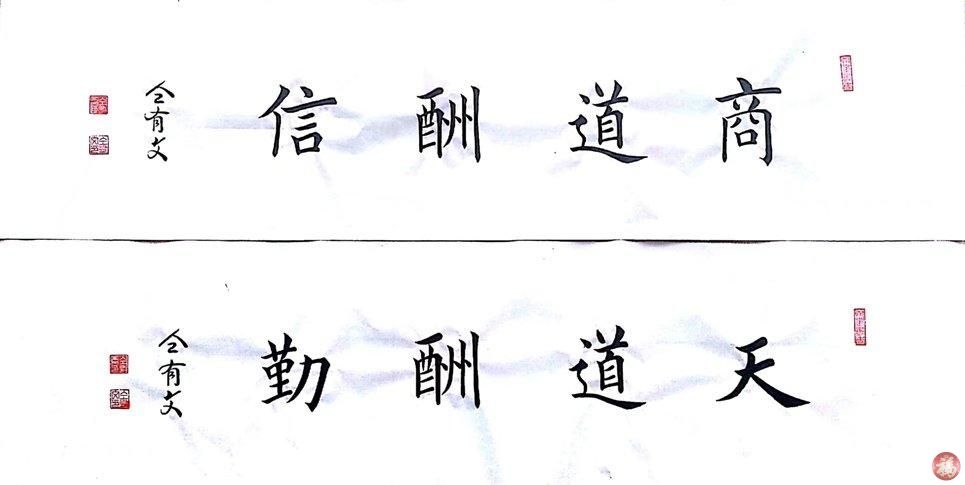 商道酬信
仝有文
天道酬勤
仝有文